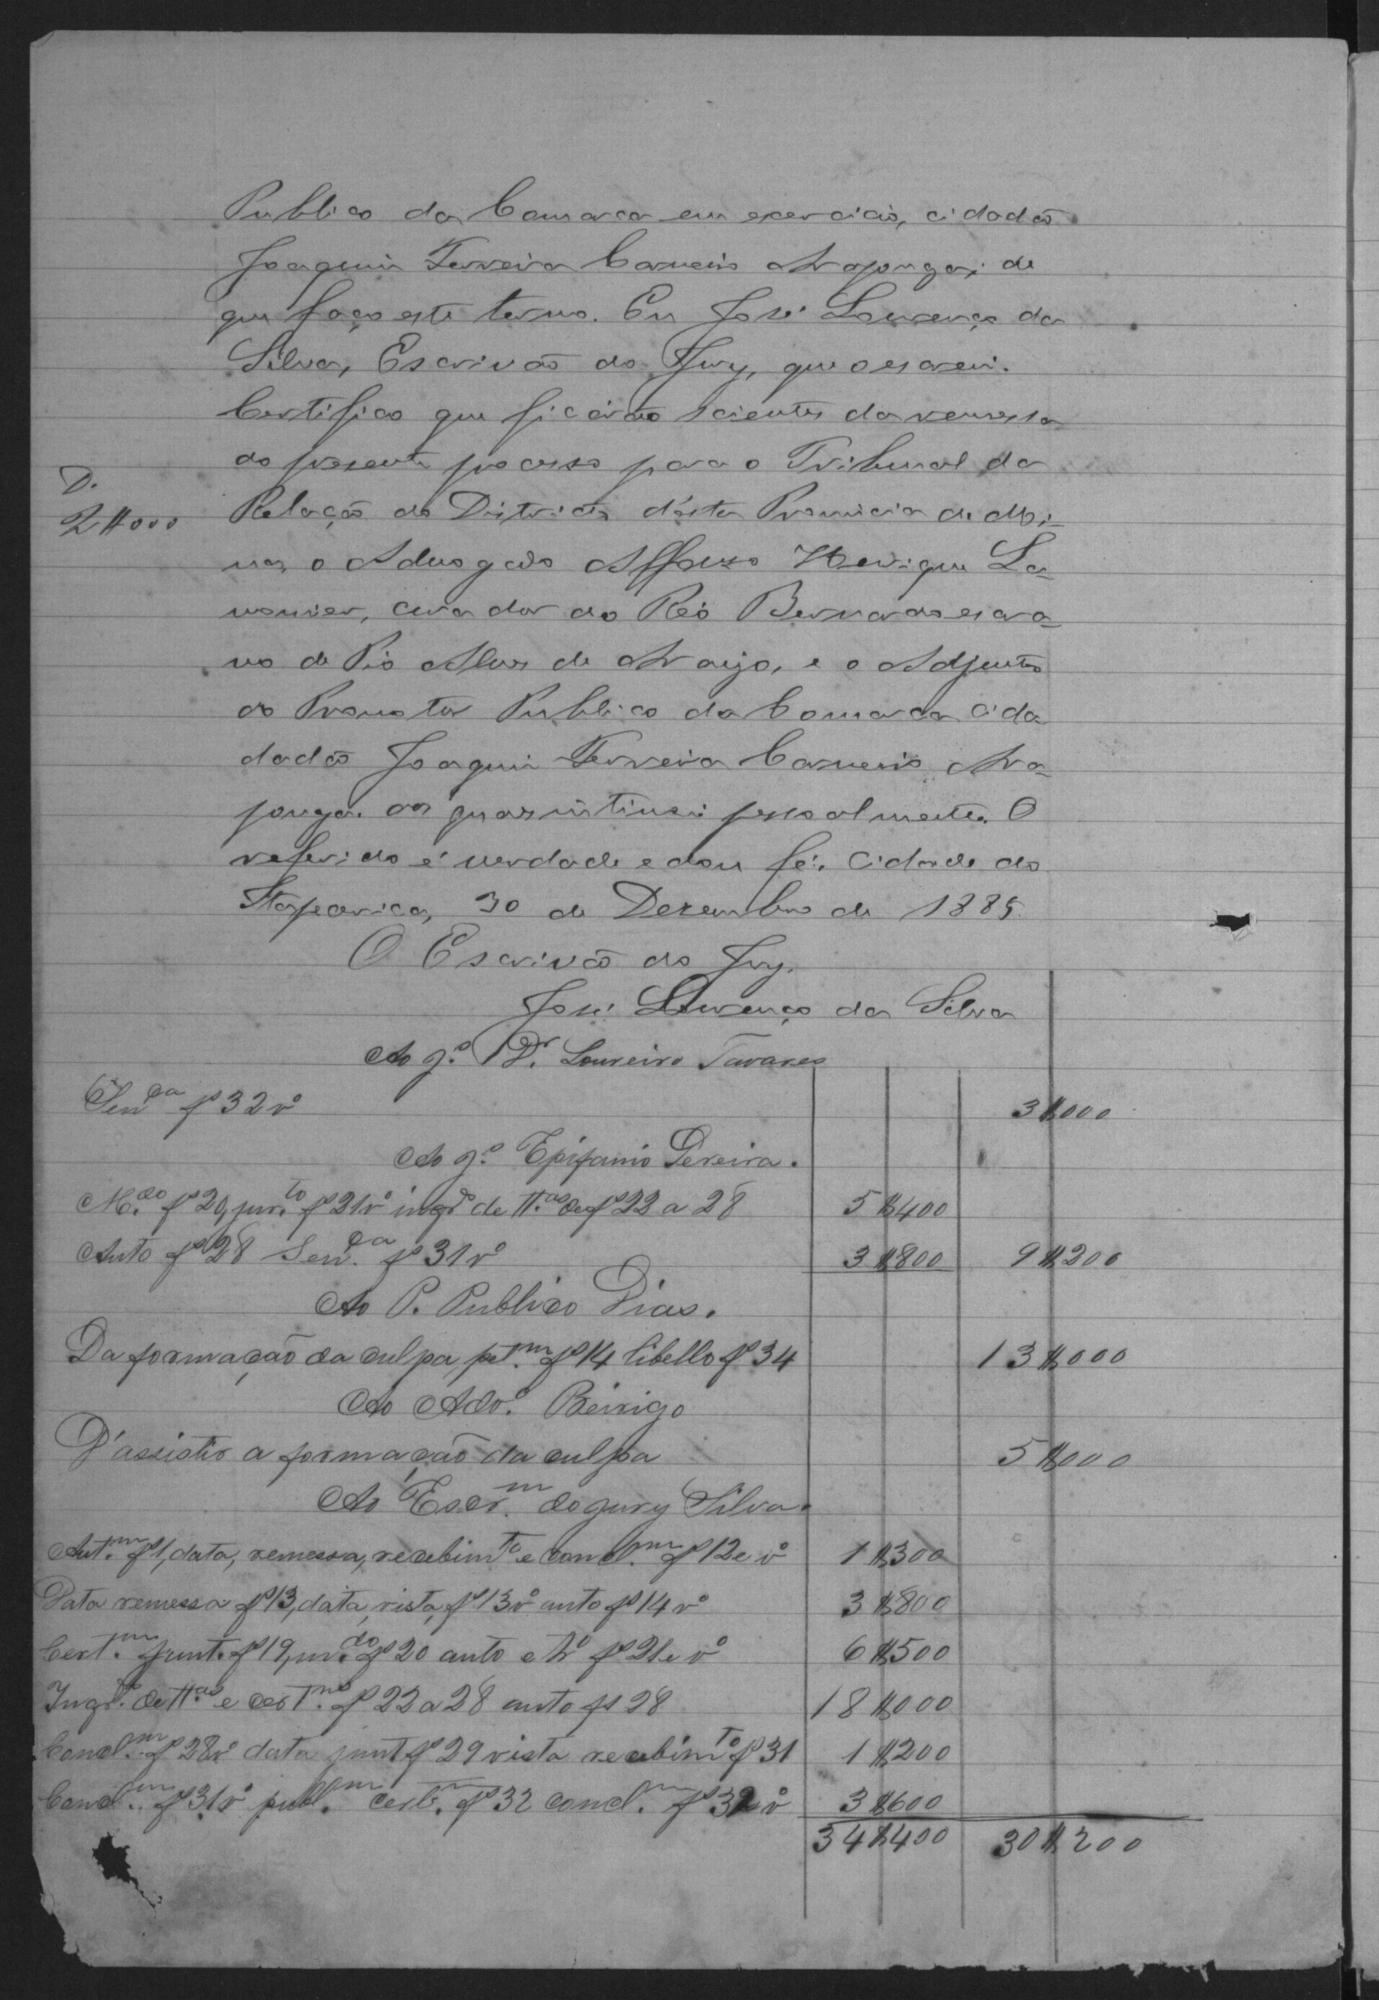 Publico da Comarca em exercicio, cidadão
Joaquim Ferreira Carneiro Araponga; de
que faço este termo. Eu José Lourenço da
Silva, Escrivão do Jury, que o escrevi.
Certifico que ficárão scientes da remessa
do presente processo para o Tribunal da
D.
2$000
Relação do Districto d'ésta Provincia de Mi-
nas, o Advogado Affonso Henrique La-
mounier, curador do Réo Bernardo escra-
vo de Pio Alves de Araujo, e o Adjunto
do Promotor Publico da Comarca cida
dadão Joaquim Ferreira Carneiro Ara-
ponga. aos quaes intimei pessoalmente. O
referido é verdade e dou fé. Cidade de
Itapecerica, 30 de Dezembro de 1885.
O Escrivão do Jury.
José Lourenço da Silva
Ao J.º Dr. Loureiro Tavares
Senca fs 32vº 3$000
Ao J.º Epifanio Pereira.
M.do fs 20, jur.to fs 21vº inqr.º de tt.as de fs 22 a 28 5$400
Auto fs 28 Sen.ca fs 31vº 3$800 9$200
Ao P. Publico Dias.
Da formação da culpa, pet.m fs 14 libello fs 34 13$000
Ao Adv.º Beirigo
D'assistir a formação da culpa 5$000
Ao Escr.m do jury Silva.
Aut.m fs 1, data, remessa, recebim.to e concl.m fs 12 e vº 1$300
Data remessa fs 13, data, vista, fs 13vº auto fs 14vº 3$800
Cert.m junt. fs 19, m.do fs 20 auto e tr.º fs 21 e vº 6$500
Inqr.º de tt.as e cert.m fs 22 a 28 auto fs 28 18$000
Concl.m fs 28vº data junt fs 29 vista recebim.to fs 31 1$200
Concl.m fs 31vº publ.m cert.m fs 32 concl.m fs 32vº 3$600
34$400 30$200